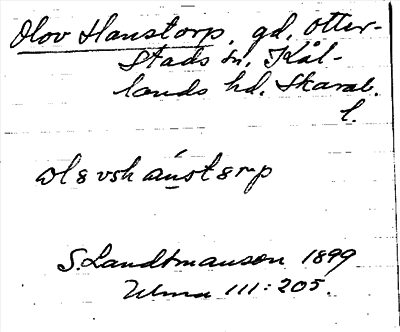 Olov Hanstorp, gd. Otter-
stads sn, Kål-
lands hd. Skarab.
l.
S. Landtmanson 1899
Ulma 111:205.